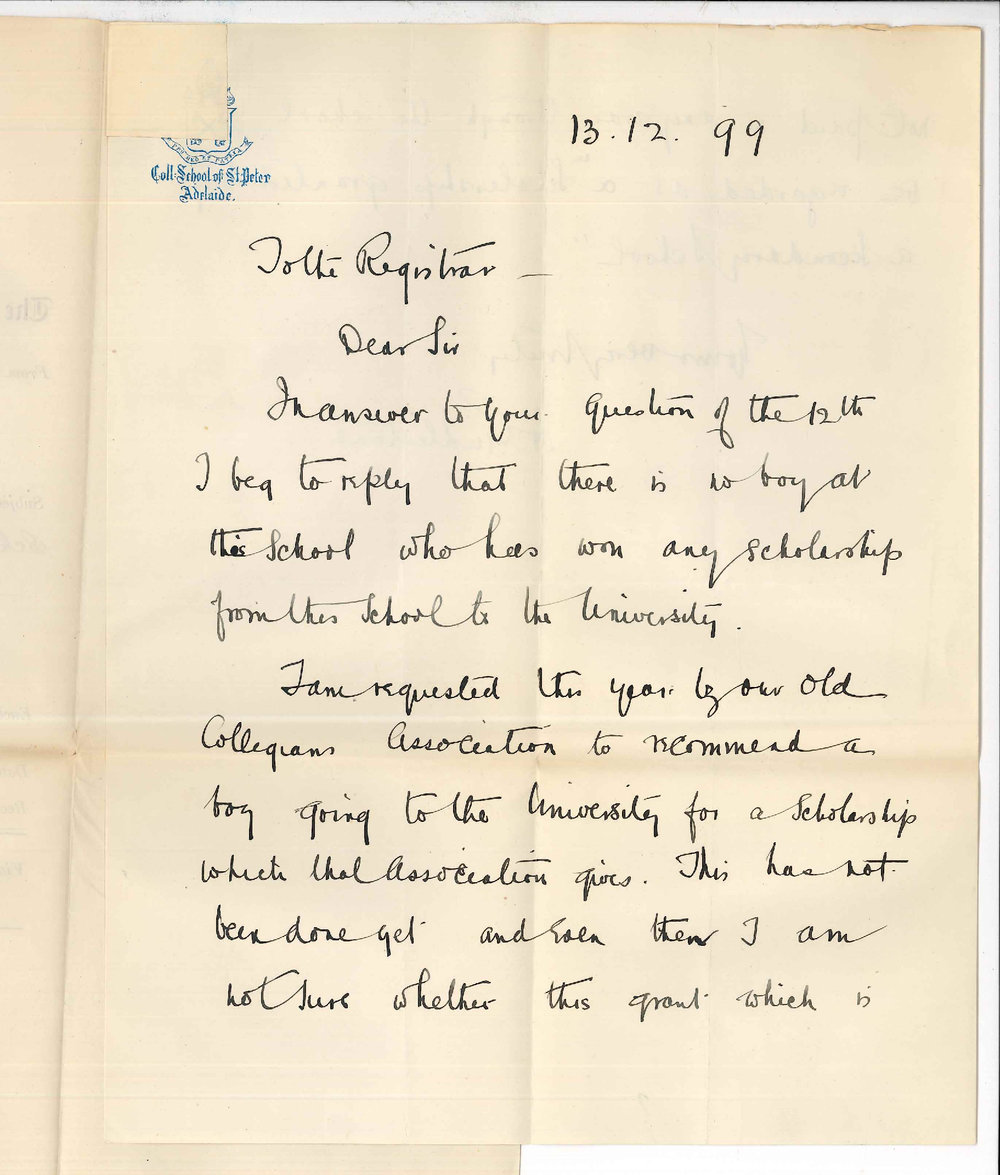 Coll: School of St. Peter
Adelaide.
13.12.99
To the Registrar —
Dear Sir
In answer to your question of the 12th
I beg to reply that there is no boy at
this School who has won any scholarship
from this School to the University.
I am requested this year by our Old
Collegians Association to recommend a
boy going to the University for a Scholarship
which that Association gives. This has not
been done yet and even then I am
not sure whether this grant which is